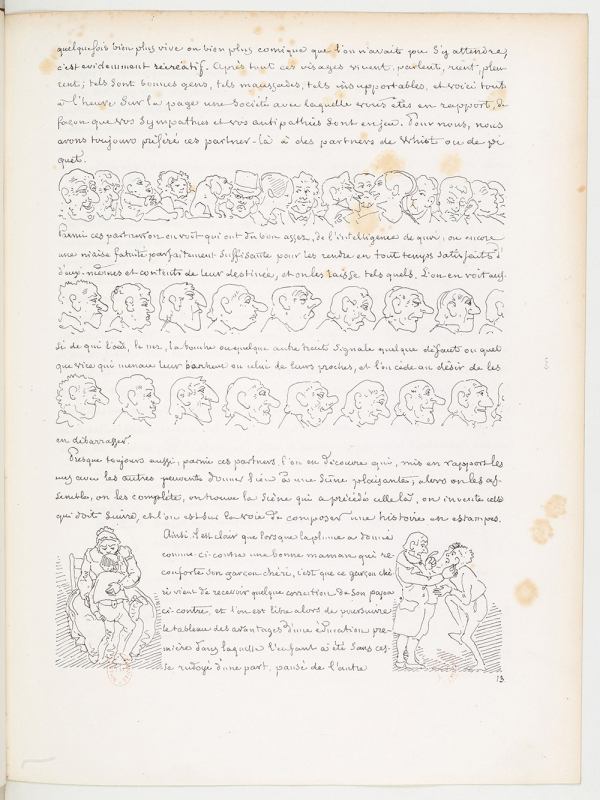 quelquefois bien plus vive ou bien plus comique que l'on n'avait pu s'y attendre,
c'est evidemment récréatif. Après tout ces visages vivent, parlent, rient, pleu
rent; tels sont bonnes gens, tels maussades, tels insupportables, et voici tout
à l'heure sur la page une société avec laquelle vous êtes en rapport, de
façon que vos sympathies et vos antipathies sont en jeu. Pour nous, nous
avons toujours préféré ces partner-là à des partners de Whist ou de pi
quet.
Parmi ces partners on en voit qui ont du bon assez, de l'intelligence de quoi, ou encore
une niaise fatuité parfaitement suffisante pour les rendre en tout temps satisfaits d'
d'eux-mêmes et contents de leur destinée, et on les laisse tels quels. L'on en voit aus-
si de qui l'œil, le nez, la bouche ou quelque autre trait signale quelque défaut ou quel
que vice qui menace leur bonheur ou celui de leurs proches, et l'on cède au désir de les
en débarrasser.
Presque toujours aussi, parmi ces partners, l'on en découvre qui, mis en rapport les
uns avec les autres peuvent donner lieu à une scène plaisante; alors on les as-
semble, on les complète, on trouve la scène qui a précédé celle là, on invente celle
qui doit suivre, et l'on est sur la voie de composer une histoire en estampes.
Ainsi il est clair que lorsque la plume a donné
comme ci-contre une bonne maman qui ré-
conforte son garçon chéri, c'est que ce garçon ché
ri vient de recevoir quelque correction de son papa
ci-contre, et l'on est libre alors de poursuivre
le tableau des avantages d'une éducation pre-
mière dans laquelle l'enfant a été sans ces-
se rudoyé d'une part, pansé de l'autre
13.